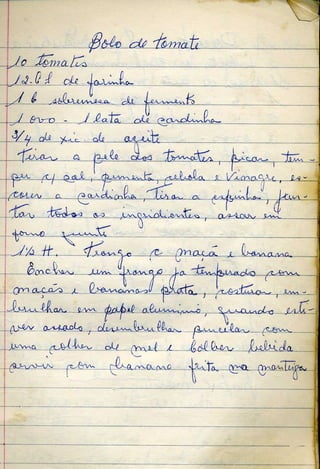 Bolo de tomate
10 tomates
12 c/ s/ de farinha
1 c/ sobremesa de fermento
1 ovo - 1 lata de sardinha
3/4 de xic de azeite
Tirar a pele dos tomates, picar, tem-
per c/ sal, pimenta, cebola e vinagre, es-
correr a sardinha, tirar a espinha, jun-
tar todos os ingridientes, assar em
forno quente
1 1/2 H. Frango c maçã e banana
Encher um frango ja temperado com
maçãs e bananas prata, costurar, em-
brulhar em papel aluminio, quando esti-
ver assado, desembrulhar pincelar com
uma colher de mel e bebida
servir com banana frita na manteiga